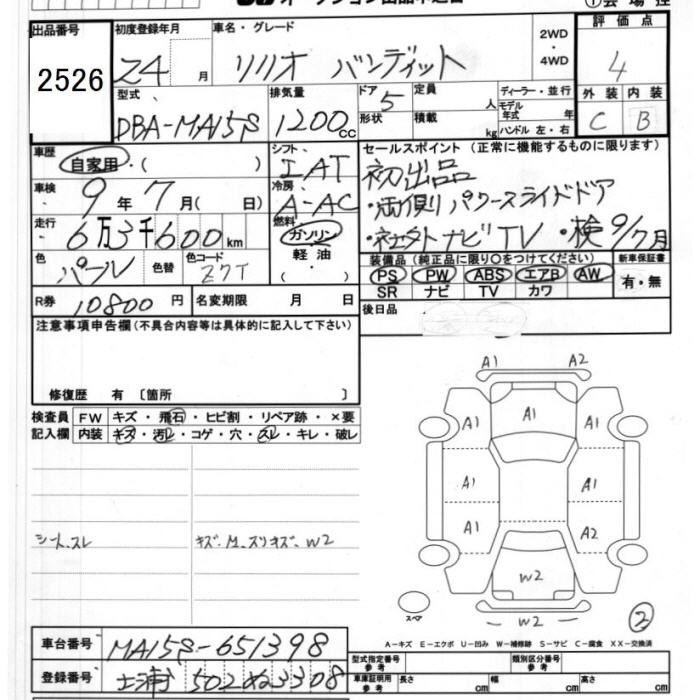 出品番号 初度登録年月 車名・グレード 評価点
2526 24 月 ソリオ バンディット 2WD・4WD 4
型式 排気量 ドア 定員 ディーラー・並行 外装 内装
DBA-MA15S 1200cc 5 人 モデル年式 年 C B
形状 積載 kg ハンドル 左・右
車歴 自家用・( ) シフト IAT セールスポイント(正常に機能するものに限ります)
車検 9年7月( 日) 冷房 A-AC 初出品
走行 6万3千600km 燃料 ガソリン 軽油 ・( ) ・両側パワースライドドア
色 パール 色替 色コード Z7T ・社外ナビTV ・検9/7月
装備品(純正品に限り○をつけてください) 新車保証書
PS PW ABS エアB AW 有・無
SR ナビ TV カワ
R券 10800円 名変期限 月 日 後日品
注意事項申告欄(不具合内容等は具体的に記入して下さい)
修復歴 有 〔箇所 〕
検査員 FW キズ・飛石・ヒビ割・リペア跡・×要
記入欄 内装 キズ・汚レ・コゲ・穴・スレ・キレ・破レ
シート.スレ キズ.M.スリキズ.W2
A1 A2
A1
A1 A1
A1 A1
A1 A2
W2
W2
スペア
②
A-キズ E-エクボ U-凹み W-補修跡 S-サビ C-腐食 XX-交換済
車台番号 MA15S-651398
型式指定番号 参考 類別区分番号 参考
登録番号 土浦502ぬ3308
車庫証明用 参考 長さ cm 幅 cm 高さ cm